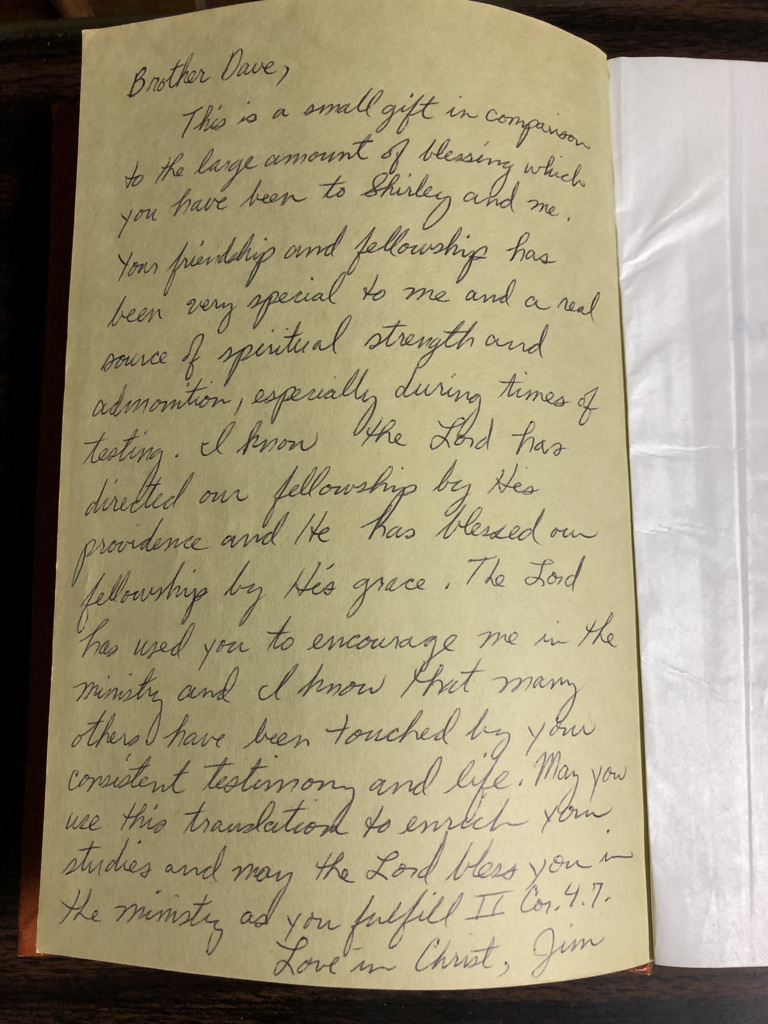 Brother Dave,
This is a small gift in comparison
to the large amount of blessing which
you have been to Shirley and me.
Your friendship and fellowship has
been very special to me and a real
source of spiritual strength and
admonition, especially during times of
testing. I know the Lord has
directed our fellowship by His
providence and He has blessed our
fellowship by His grace. The Lord
has used you to encourage me in the
ministry and I know that many
others have been touched by your
consistent testimony and life. May you
use this translation to enrich your
studies and may the Lord bless you in
the ministry as you fulfill II Cor. 4.7.
Love in Christ, Jim